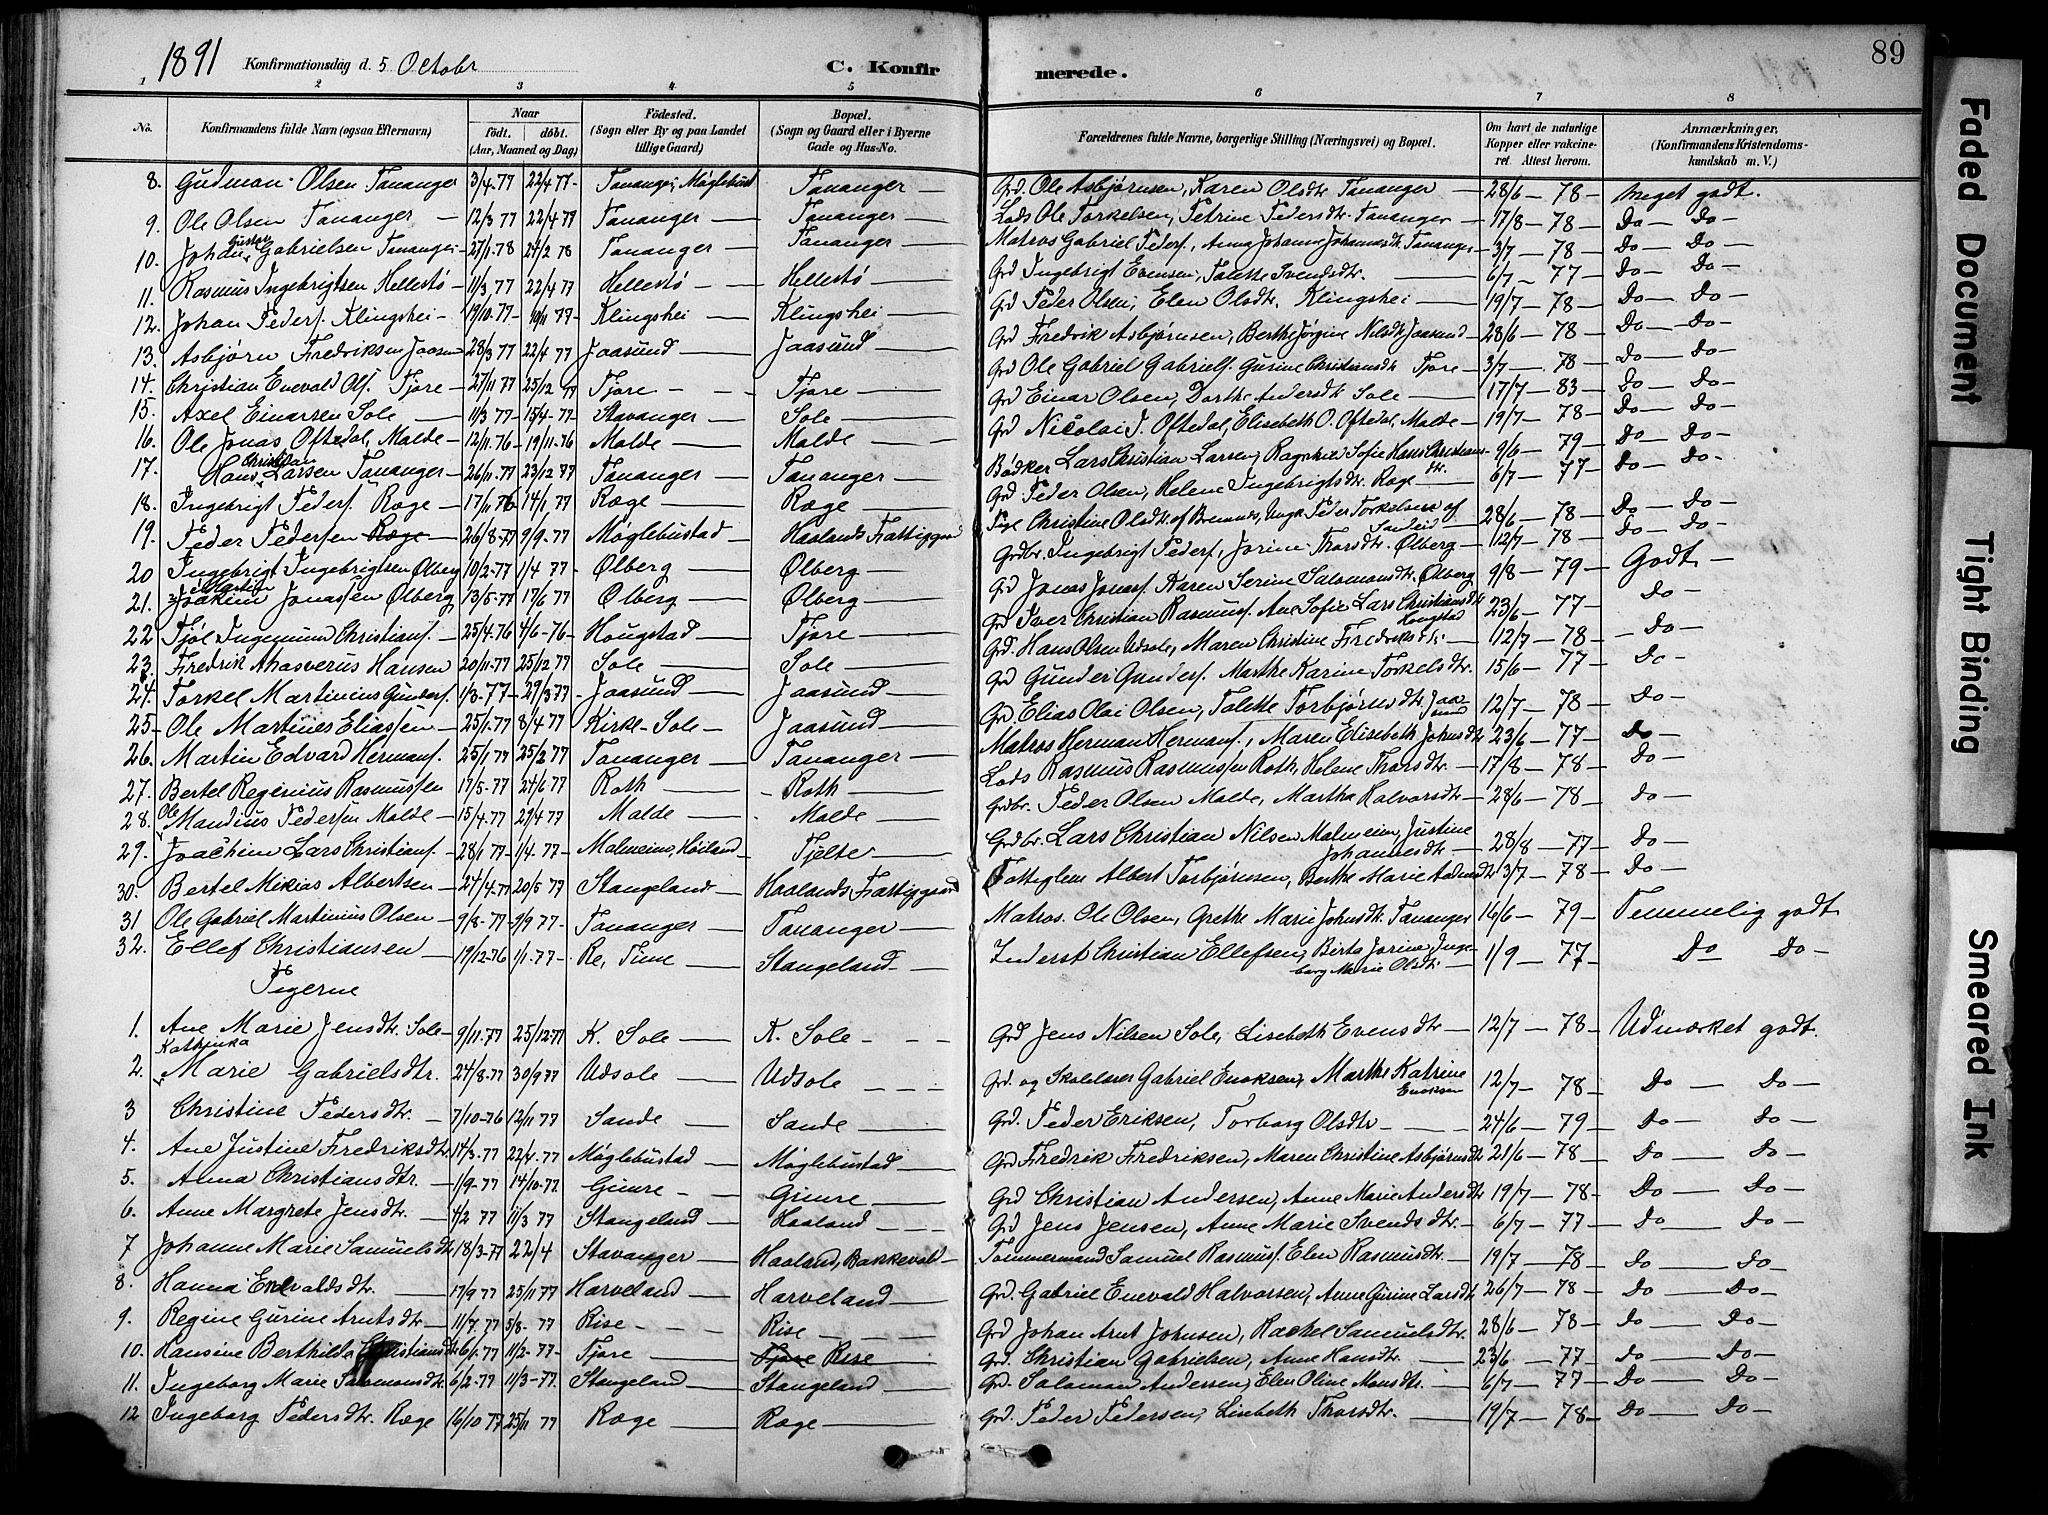 1891 Konfirmationsdag d. 5 Octobr C. Konfirmerede. 89
1 2 3 4 5 6 7 8
No. Konfirmandens fulde Navn (ogsaa Efternavn) Naar födt. döbt. (Aar, Maaned og Dag) Födested. (Sogn eller By og paa Landet tillige Gaard) Bopæl. (Sogn og Gaard eller i Byerne Gade og Hus-No. Forældrenes fulde Navne, borgerlige Stilling (Næringsvei) og Bopæl. Om havt de naturlige Kopper eller vakcineret. Attest herom. Anmærkninger. (Konfirmandens Kristendomskundskab m. V.)
8. Gudman Olsen Tananger 3/4.77 22/4 77 Tananger, Møglebust Tananger Grd. Ole Asbjørnsen, Karen Olsdtr Tananger 28/6 - 78 Meget godt.
9. Ole Olsen Tananger 12/3 77 22/4 77 Tananger Tananger Lods Ole Torkelsen, Petrine Pedersdtr. Tananger 17/8 - 78 Do Do
10. Johan Gustav Gabrielsen Tananger 27/1.78 24/2 78 Tananger Tananger Matros Gabriel Peders., Anna Johanne Johannesdtr Tananger 3/7 - 78 Do Do
11. Rasmus Ingebrigtsen Hellestø 11/3 77 22/4 77 Hellestø Hellestø Grd Ingebrigt Evensen, Talette Svendsdtr. 6/7 - 77 Do Do
12. Johan Peders. Klingshei 19/10.77 18/11 77 Klingshei Klingshei Grd Peder Olsen, Elen Olsdtr. Klingshei 19/7 - 78 Do Do
13. Asbjørn Fredriksen Jaasund 28/3 77 22/4 77 Jaasund Jaasund Grd Fredrik Asbjørnsen, Berthe Jørgine Nilsdtr Jaasund 28/6 - 78 Do Do
14. Christian Enevald Ols. Tjore 27/11 77 25/12 77 Tjore Tjore Grd Ole Gabriel Gabriels. Gurine Christiansdtr Tjore 3/7 - 78 Do Do
15. Axel Einarsen Sole 11/3 77 15/4 77 Stavanger Sole Grd Einar Olsen, Dorthe Andersdtr Sole 17/7 - 83 Do Do
16. Ole Jonas Oftedal, Malde 12/11.76 19/11.76 Malde Malde Grd Nicolai J. Oftedal, Elisabeth O. Oftedal, Malde 19/7 - 78 Do Do
17. Hans Christian Larsen Tananger 26/11.77 23/12 77 Tananger Tananger Bødker Lars Christian Larsen, Ragnhild Sofie Hans Christiansdtr. 9/6 - 79 Do Do
18. Ingebrigt Peders. Ræge 17/11 76 14/1 77 Ræge Ræge Grd Peder Olsen, Helene Ingebrigtsdtr. Ræge 6/7 - 77 Do Do
19. Peder Pedersen Ræge 26/8.77 9/9 77 Møglebustad Haalands Fattiggaard Pige Christine Olsdtr af Bremnes, Ungk. Peder Torkelsen af Sandeid 28/6 - 78 Do Do
20 Ingebrigt Ingebrigtsen Ølberg 10/2.77 1/4 77 Ølberg Ølberg Grdbr. Ingebrigt Peders., Jorine Thorsdtr. Ølberg 12/7 - 78 Do Do Godt
21. Joakim Martin Jonassen Ølberg 13/5.77 17/6 77 Ølberg Ølberg Grd Jonas Jonass. Karen Serine Salomonsdtr. Ølberg 9/8 - 79 Do
22 Tjøl Ingemund Christians. 25/4.76 4/6 76 Hougstad Tjore Grd Iver Christian Rasmus. Ane Sofie Lars Christiansdtr Hougstad 23/6 - 77 Do
23. Fredrik Ahasverus Hansen 20/11.77 25/12 77 Sole Sole Grd. Hans Olsen Udsole, Maren Christine Fredriksdtr. 12/7 - 78 Do
24. Torkel Martinius Gunders. 1/3.77 29/3 77 Jaasund Jaasund Grd Gunder Gunders. Marthe Karine Torkelsdtr. 15/6 - 77
25 Ole Martines Eliassen 25/1.77 8/4 77 Kirke-Sole Jaasund Grd Elias Olai Olsen, Talette Torbjørnsdtr. Jaasund 12/7 - 78 Do
26. Martin Edvard Hermans. 25/1 77 25/2 77 Tananger Tananger Matros Herman Hermans., Maren Elisebeth Johnsdtr 23/6 - 77 Do
27. Bertel Reginius Rasmussen 17/5.77 24/6 77 Roth Roth Lods Rasmus Rasmussen Roth, Helene Thorsdtr. 17/8 - 78 Do
28. Ole Mandius Pedersen Malde 15/4.77 29/4 77 Malde Malde Grdbr. Peder Olsen Malde, Martha Halvorsdtr 28/6 - 78 Do
29. Joachim Lars Christians. 28/1 77 1/4 77 Malmeim, Høiland Tjelte Grdbr. Lars Christian Nilsen Malmeim, Justine Johannesdtr. 28/8 - 77 Do
30. Bertel Mikias Albertsen 24/4.77 20/5 77 Stangeland Haalands Fattiggaard Fattiglem Albert Torbjørnsen, Berthe Marie Aadnesdtr 3/7 - 78 Do
31 Ole Gabriel Martinius Olsen 9/8.77 9/9 77 Tananger Tananger Matros. Ole Olsen, Grethe Marie Johnsdtr. Tananger 16/6 - 79 Temmelig godt
32. Ellef Christiansen 19/12.76 1/1.77 Re, Time Stangeland Inderst Christian Ellefsen, Birta Jorine Ingeborg Marie Olsdtr. 1/9 77 Do Do
Pigerne
1. Ane Marie Jensdtr. Sole 9/11.77 25/12.77 K. Sole K. Sole Grd Jens Nilsen Sole, Lisebeth Evensdtr 12/7 - 78 Udmærket godt.
2. Kathinka Marie Gabrielsdtr. 24/8.77 30/9 77 Udsole Udsole Grd. og Skolelærer Gabriel Enoksen, Marthe Katrine Enoksen 12/7 - 78 Do Do
3 Christine Pedersdtr. 7/10.76 12/11 77 Sande Sande Grd. Peder Eriksen, Torborg Olsdtr 24/6 - 79 Do Do
4. Ane Justine Fredriksdtr. 14/3.77 22/4.77 Møglebustad Møglebustad Grd Fredrik Fredriksen, Maren Christine Asbjørnsdtr 21/6 - 78 Do Do
5. Anna Christiansdtr. 1/9.77 14/10.77 Gimre Gimre Grd Christian Andersen, Anne Marie Andersdtr 19/7 - 78 Do Do
6. Anne Margrete Jensdtr. 4/2 77 11/3 77 Stangeland Haaland Grd Jens Jensen, Anne Marie Svendsdtr. 6/7 - 77 Do Do
7 Johanne Marie Samuelsdtr 18/3.77 22/4 Stavanger Haaland, Bakkevold Tømmermand Samuel Rasmus. Elen Rasmusdtr. 19/7 - 78 Do Do
8. Hanna Enevaldsdtr. 17/9 77 25/11 77 Harveland Harveland Grd. Gabriel Enevald Halvorsen, Anne Gurine Larsdtr 26/7 - 78 Do Do
9. Regine Gurine Arntsdtr 11/7 77 5/8 77 Rise Rise Grd Johan Arnt Johnsen, Rachel Samuelsdtr. 28/6 - 78 Do Do
10. Hansine Berthilde Christiansdtr 6/1.77 11/2 77 Tjore Tjore Rise Grd. Christian Gabrielsen, Anne Hansdtr. 23/6 - 77 Do Do
11. Ingeborg Marie Salomonsdtr. 6/2.77 11/3.77 Stangeland Stangeland Grd. Saloman Andersen, Elen Oline Monsdtr. 6/7 - 77 Do Do
12 Ingeborg Pedersdtr. Ræge 16/10 77 25/11 77 Ræge Ræge Grd. Peder Pedersen, Lisebeth Thorsdtr. 19/7 - 78 Do Do
Faded Document
Tight Binding
Smeared Ink